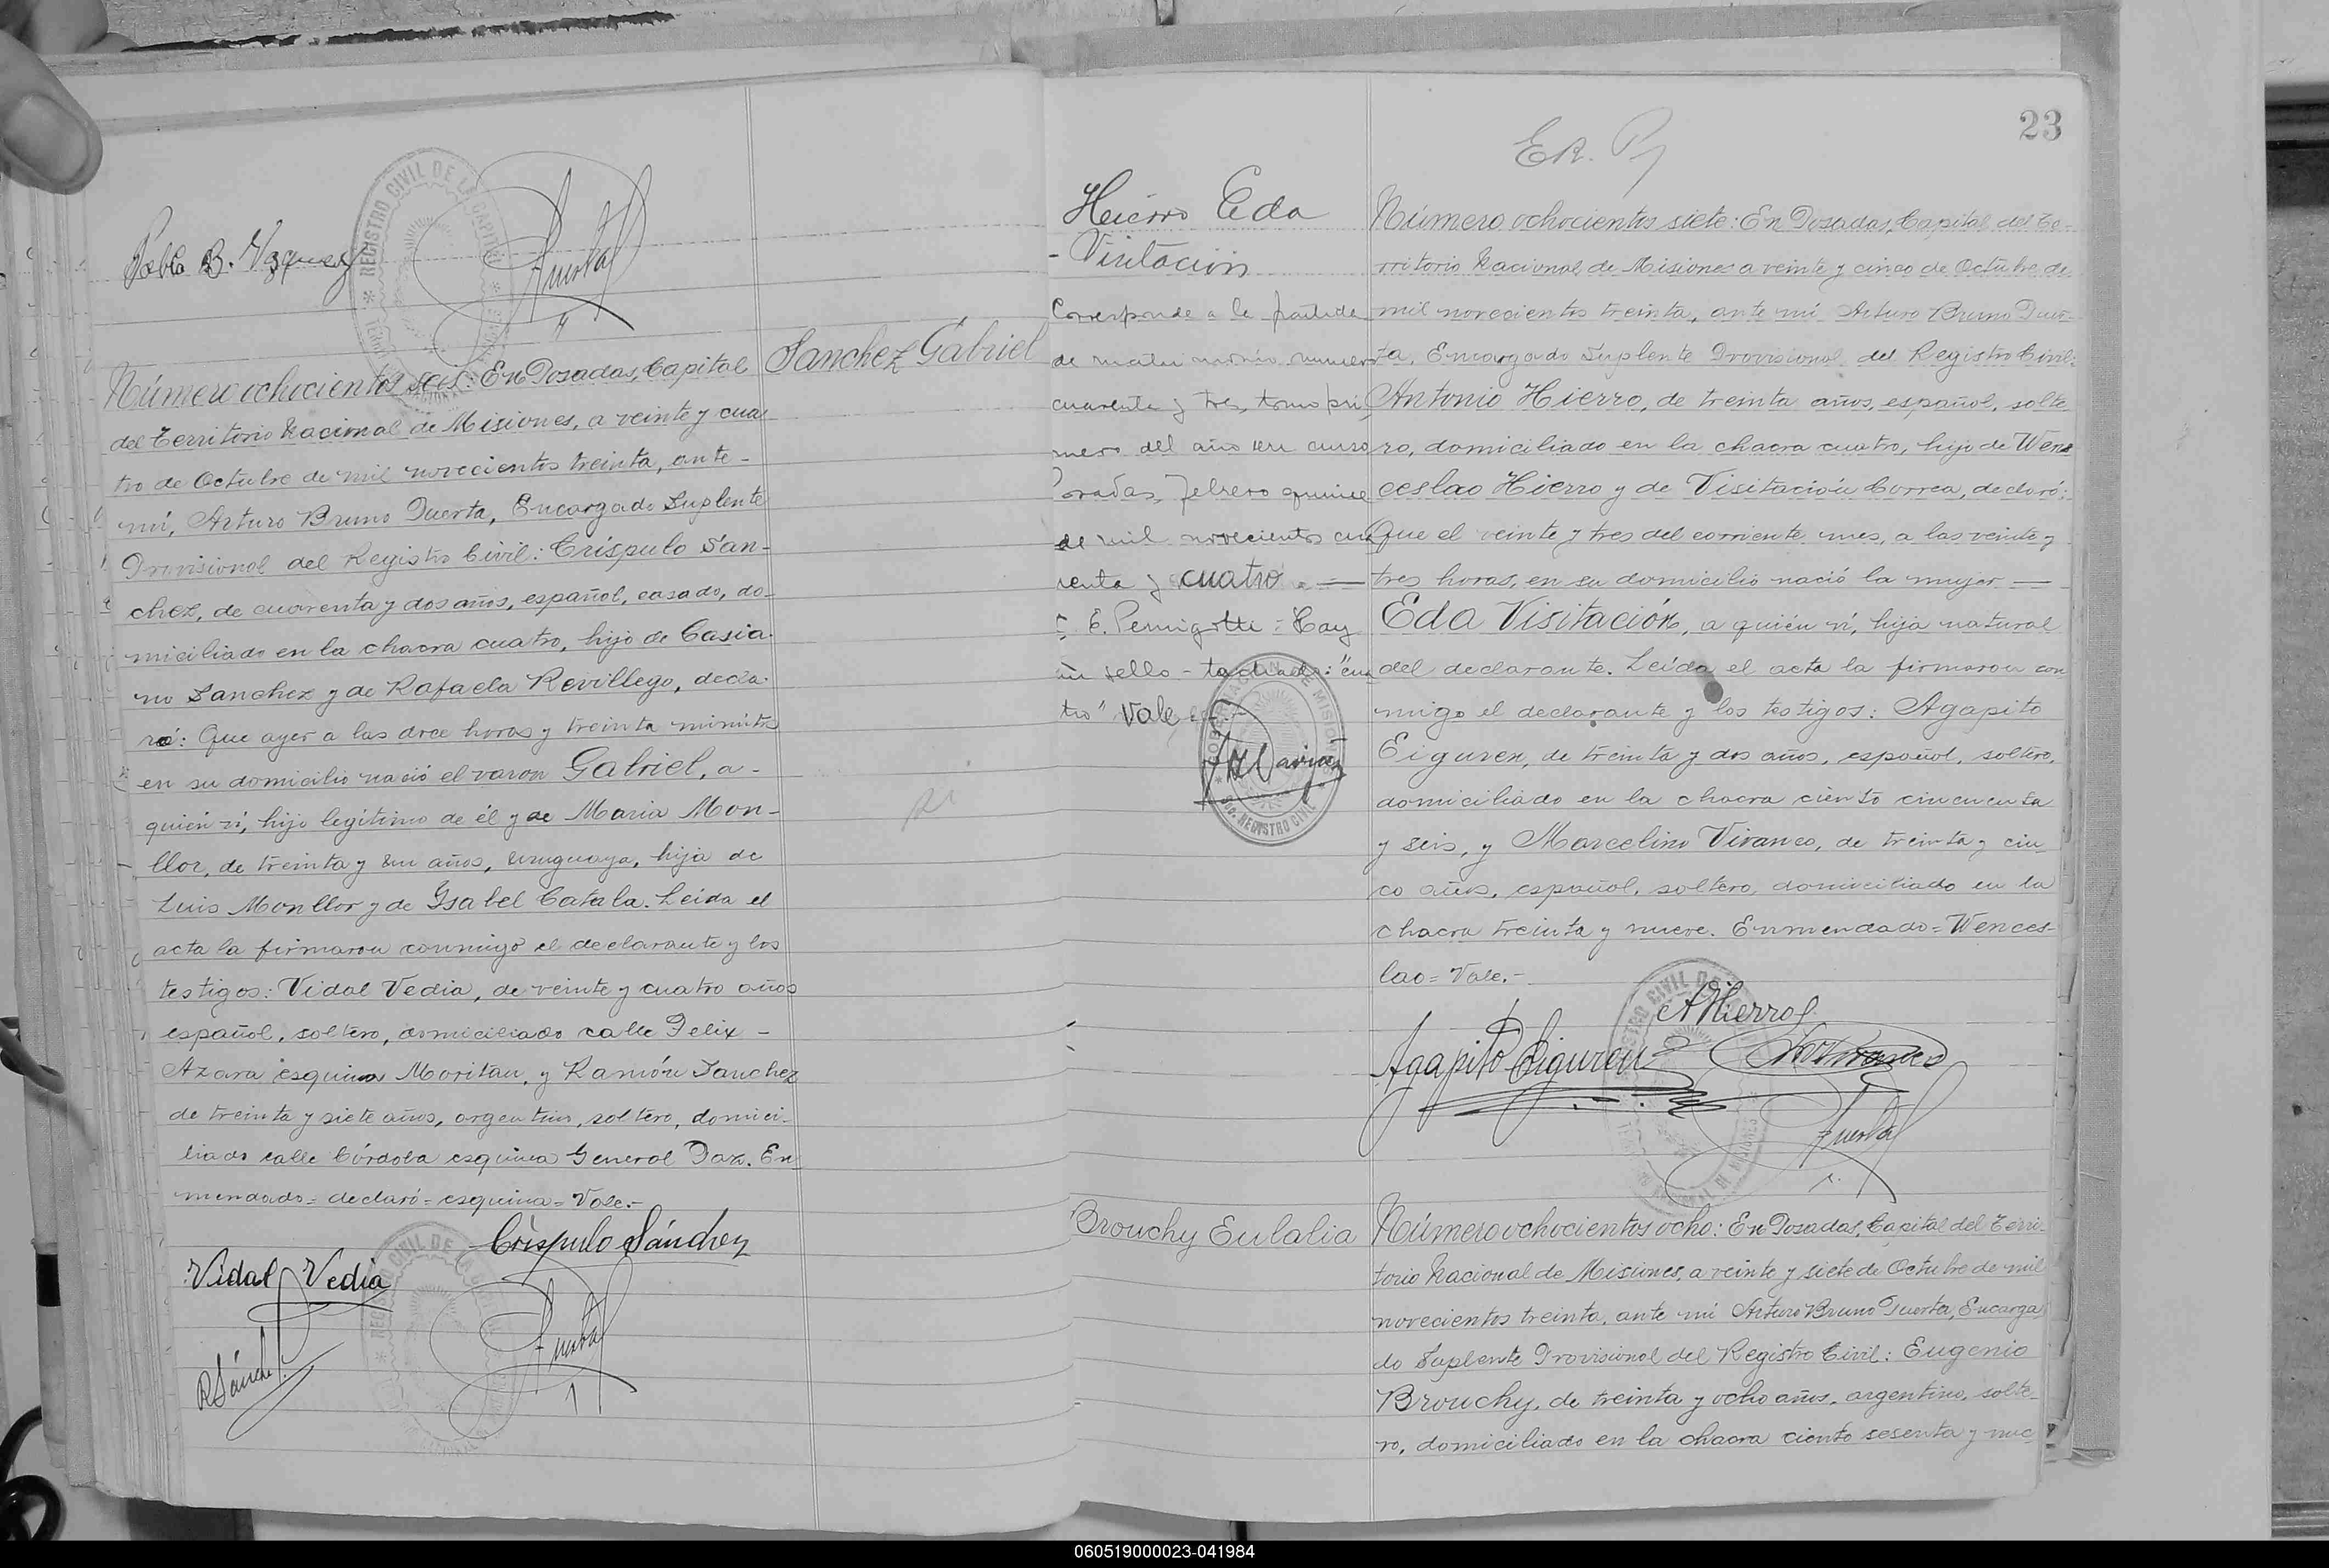 Pablo B. Vazquez
Puerta
REGISTRO CIVIL DE LA CAPITAL
Sanchez Gabriel
Número ochocientos seis: En Posadas, Capital
del Territorio Nacional de Misiones, a veinte y cua-
tro de Octubre de mil novecientos treinta, ante-
mí, Arturo Bruno Puerta, Encargado Suplente
Provisional del Registro Civil: Críspulo San-
chez, de cuarenta y dos años, español, casado, do-
miciliado en la chacra cuatro, hijo de Casia-
no Sanchez y de Rafaela Revillego, decla-
ró: Que ayer a las doce horas y treinta minutos
en su domicilio nació el varon Gabriel, a-
quién ví, hijo legítimo de él y de Maria Mon-
llor, de treinta y un años, uruguaya, hija de
Luis Monllor y de Ysabel Catala. Leída el
acta la firmaron conmigo el declarante y los
testigos: Vidal Vedia, de veinte y cuatro años
español, soltero, domiciliado calle Felix-
Azara esquina Moritan, y Ramón Sanchez
de treinta y siete años, argentino, soltero, domici-
liado calle Córdoba esquina General Paz. En-
mendado= declaró= esquina= Vale.-
Críspulo Sánchez
Vidal Vedia
Puerta
RSánchez
23
Hierro Eda
- Visitación
Corresponde a la partida
de matrimonio numero
cuarenta y tres, tomo pri
mero del año en curso
Posadas, febrero quince
de mil novecientos cua
renta y cuatro. —
un sello - tachado: "cua
tro" Vale
GOBERNACION DE MISIONES
REGISTRO CIVIL
Número ochocientos siete: En Posadas, Capital del Te-
rritorio Nacional de Misiones a veinte y cinco de Octubre de
mil novecientos treinta, ante mí Arturo Bruno Puer-
ta, Encargado Suplente Provisional del Registro Civil:
Antonio Hierro, de treinta años, español, solte
ro, domiciliado en la chacra cuatro, hijo de Wen
ceslao Hierro y de Visitación Correa, declaró:
Que el veinte y tres del corriente mes, a las veinte y
tres horas, en su domicilio nació la mujer —
Eda Visitación, a quién ví, hija natural
del declarante. Leída el acta la firmaron con
migo el declarante y los testigos: Agapito
Eiguren, de treinta y dos años, español, soltero,
domiciliado en la chacra ciento cincuenta
y seis, y Marcelino Vivanco, de treinta y cin
co años, español, soltero, domiciliado en la
chacra treinta y nueve. Enmendado= Wences-
lao= Vale.-
AHierro
Agapito Eiguren
Puerta
Brouchy Eulalia
Número ochocientos ocho: En Posadas, Capital del Terri-
torio Nacional de Misiones, a veinte y siete de Octubre de mil
novecientos treinta, ante mí Arturo Bruno Puerta, Encarga
do Suplente Provisional del Registro Civil: Eugenio
Brouchy, de treinta y ocho años, argentino, solte-
ro, domiciliado en la chacra ciento sesenta y nue
060519000023-041984